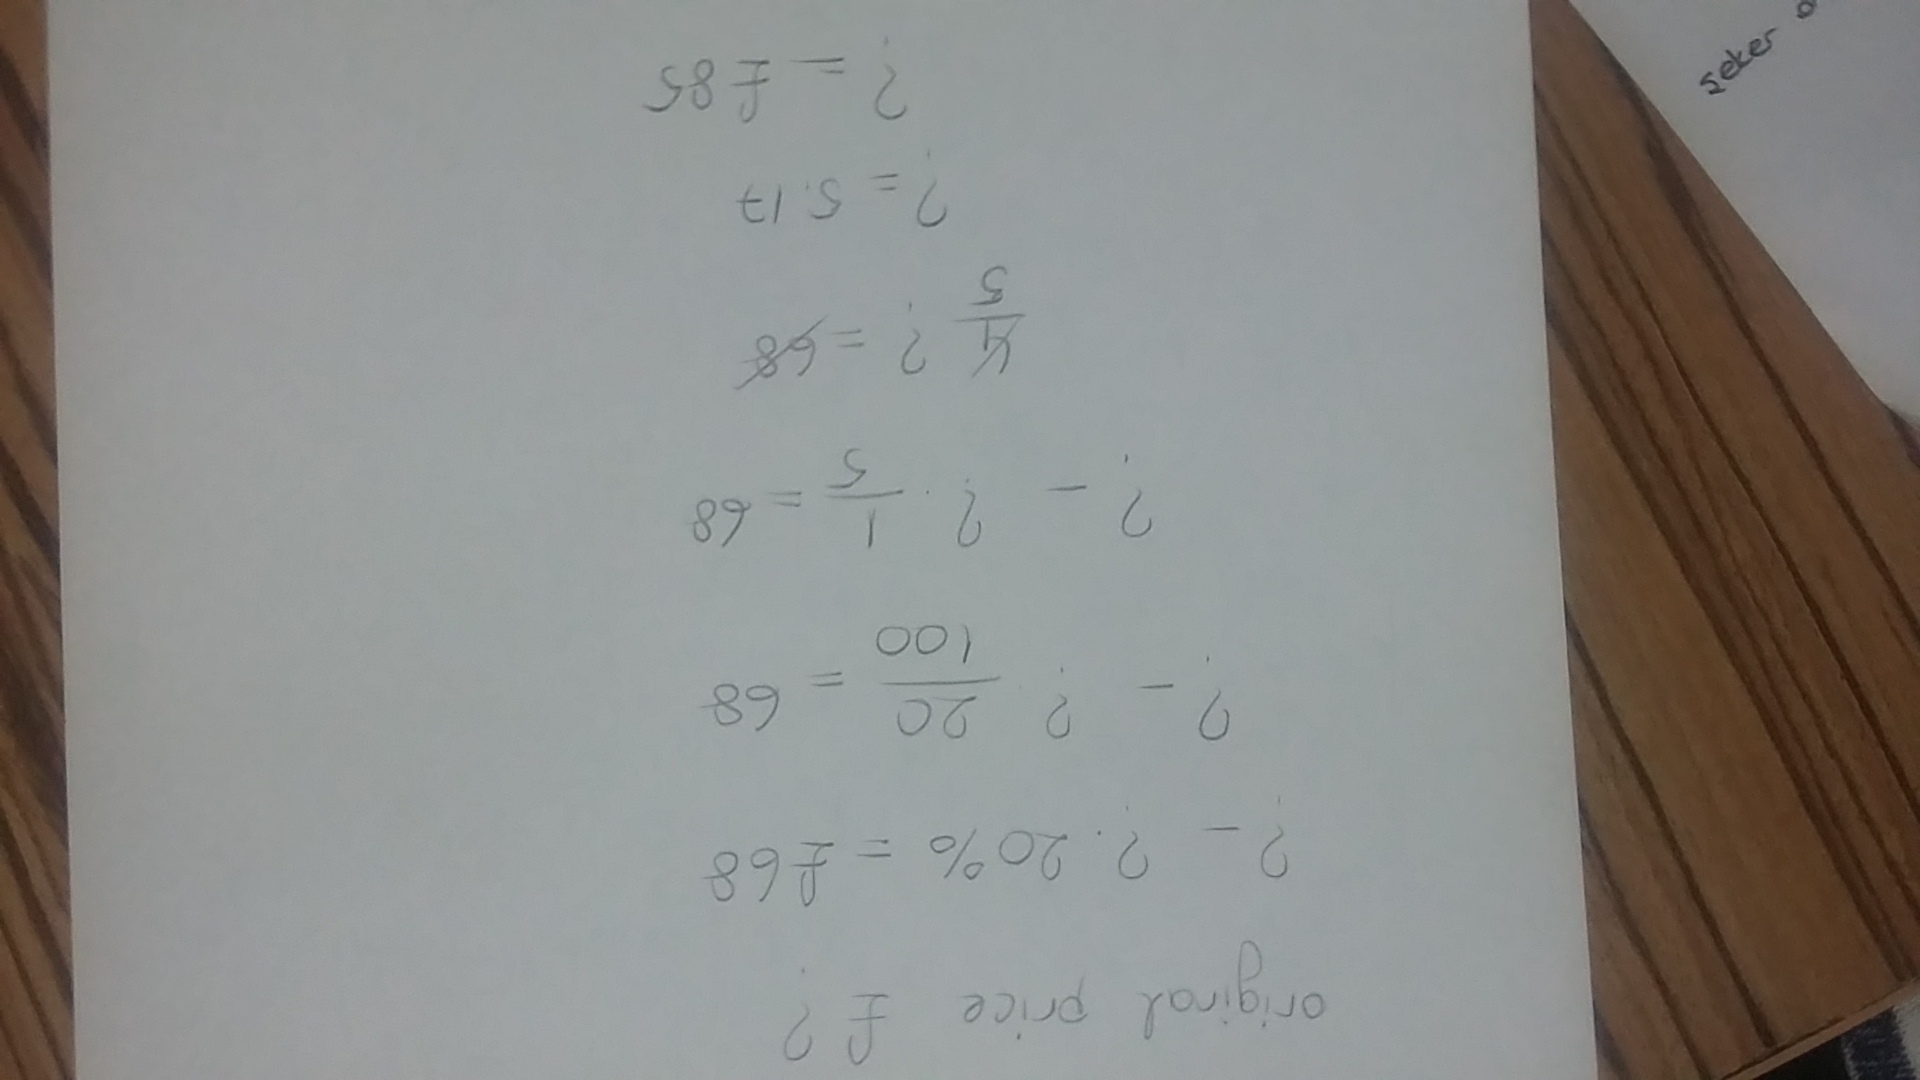 original price £?
? - ? · 20% = £68
? - ? 20/100 = 68
? - ? · 1/5 = 68
4/5 ? = 68
? = 5.17
? = £85
seker